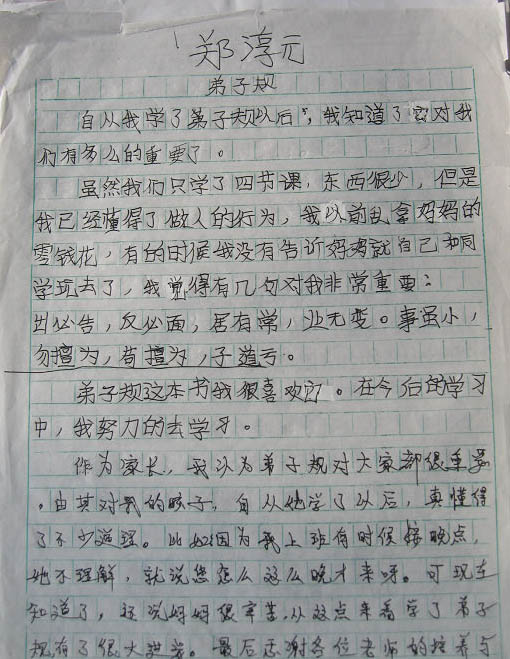 郑淳元
弟子规
自从我学了弟子规以后，我知道了它对我
们有多么的重要了。
虽然我们只学了四节课，东西很少，但是
我已经懂得了做人的行为，我以前乱拿妈妈的
零钱花，有的时候我没有告诉妈妈就自己和同
学玩去了，我觉得有几句对我非常重要：
出必告，反必面，居有常，业无变。事虽小，
勿擅为，苟擅为，子道亏。
弟子规这本书我很喜欢它。在今后的学习
中，我努力的去学习。
作为家长，我认为弟子规对大家都很重要
。由其对我的孩子，自从他学了以后，真懂得
了不少道理。比如因为我上班有时候接晚点，
他不理解，就说您怎么这么晚才来呀。可现在
知道了，还说妈妈很辛苦，从这点来看学了弟子
规有了很大进步。最后感谢各位老师的培养与